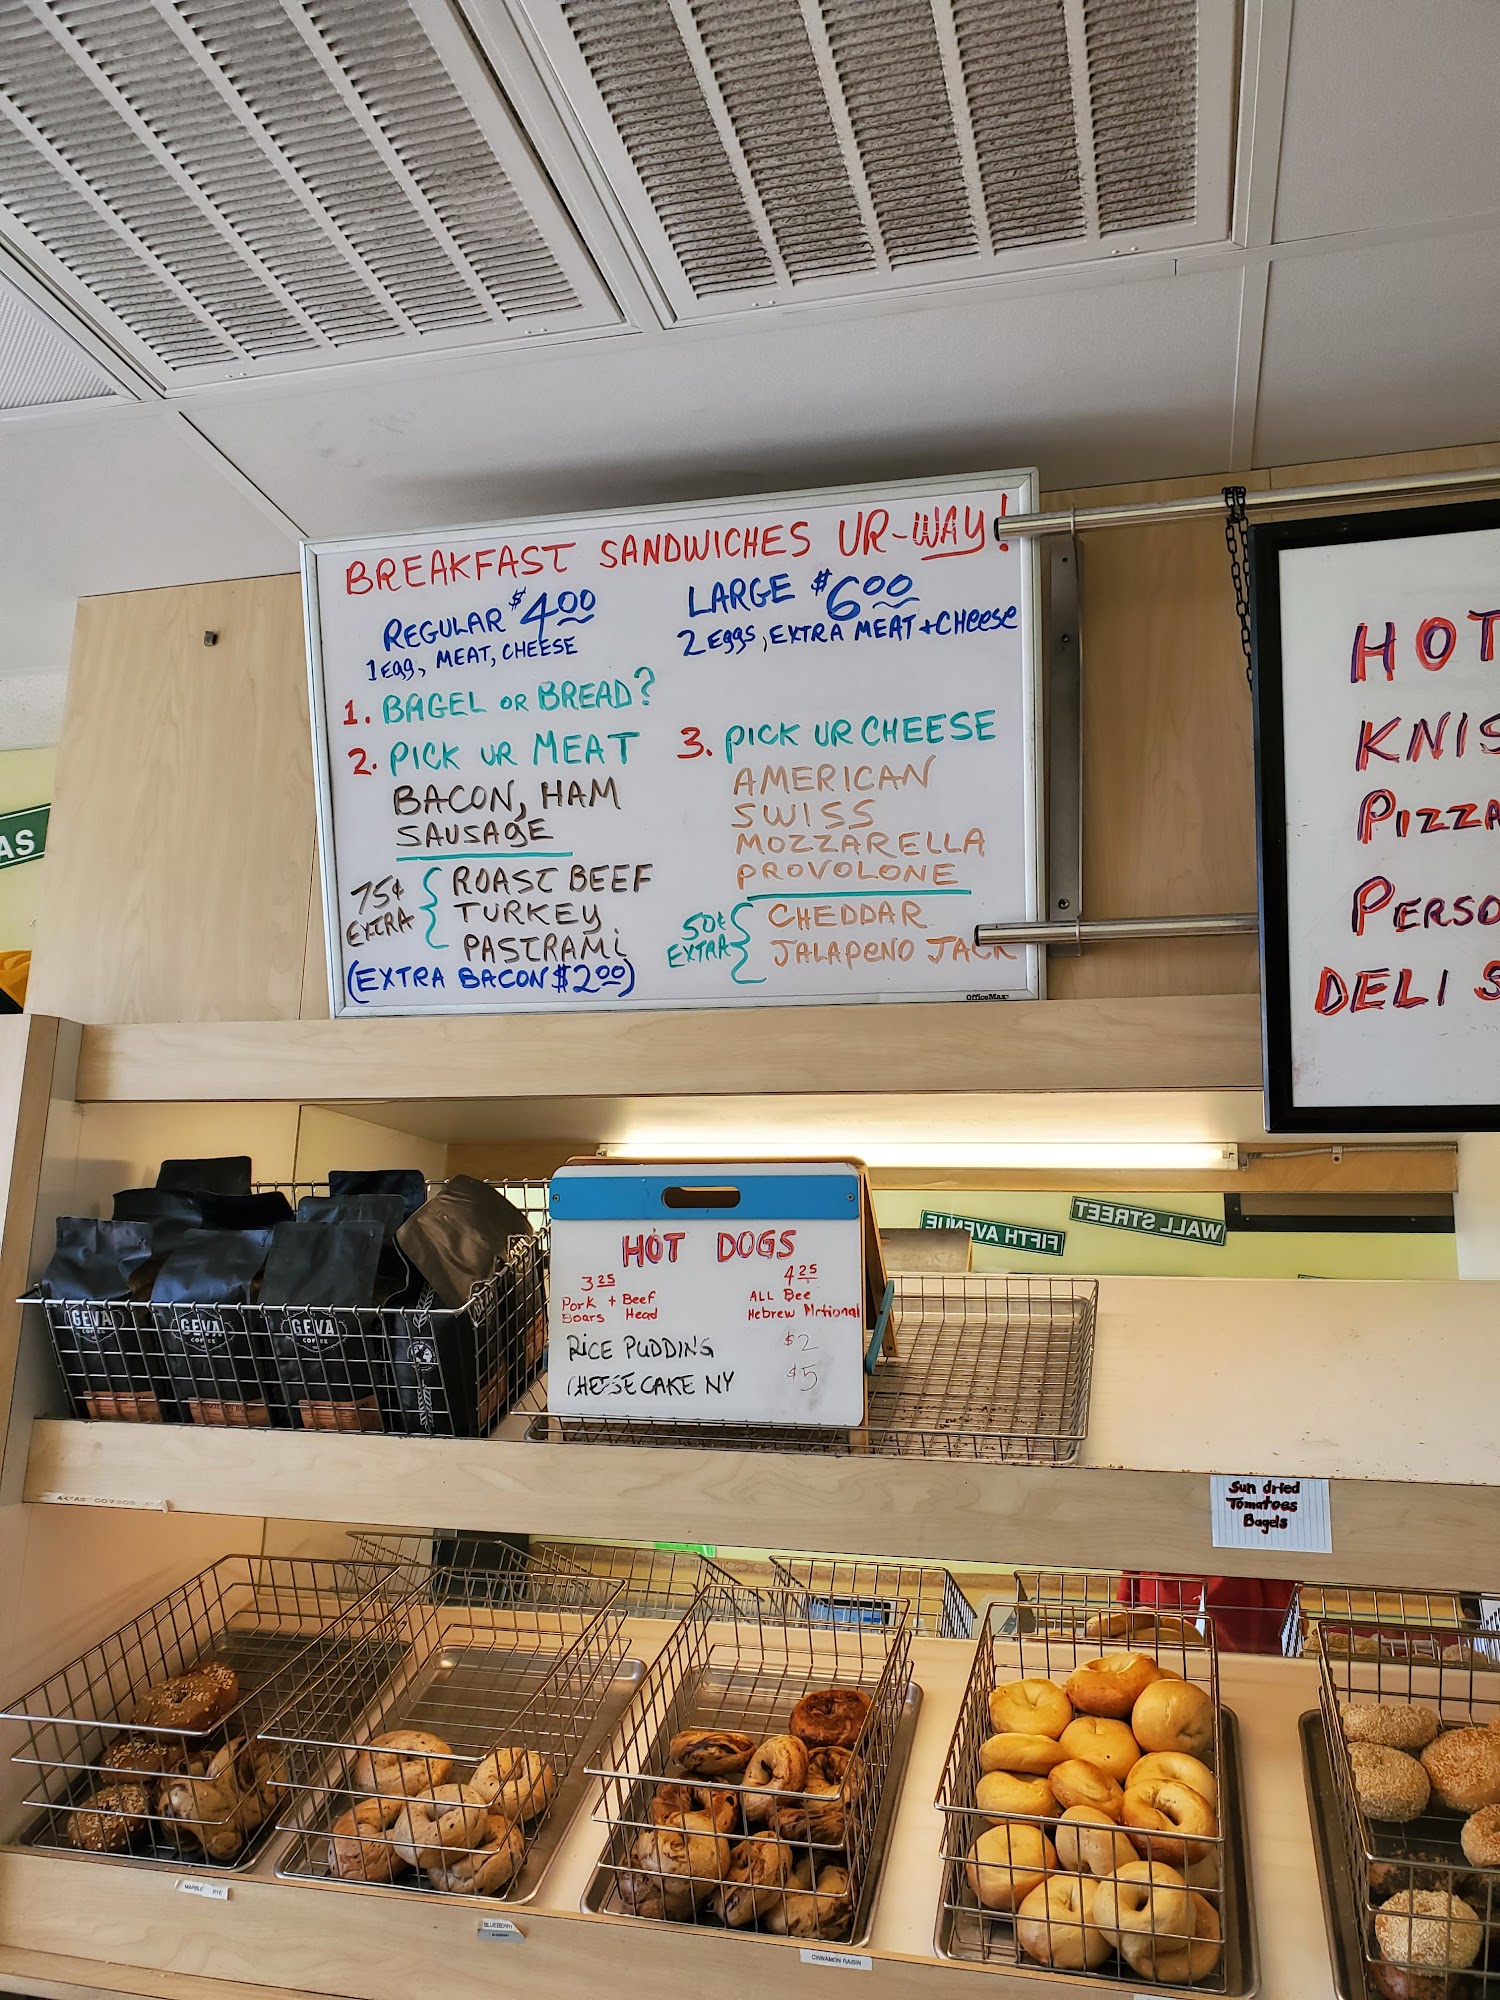 BREAKFAST SANDWICHES UR-WAY!
REGULAR $4.00
1 Egg, MEAT, CHEESE
LARGE $6.00
2 Eggs, EXTRA MEAT + CHeese
1. BAGEL OR BREAD?
2. PICK UR MEAT
BACON, HAM
SAUSAGE
75¢ EXTRA
ROAST BEEF
TURKEY
PASTRAMi
(EXTRA BACON $2.00)
3. PICK UR CHEESE
AMERICAN
SWISS
MOZZARELLA
PROVOLONE
50¢ EXTRA
CHEDDAR
JALAPENO JACK
OfficeMax
HOT
KNIS
PIZZA
PERSO
DELI S
AS
FIFTH AVENUE
WALL STREET
HOT DOGS
3.25
Pork + Beef
Boars Head
4.25
ALL Bee
Hebrew National
RICE PUDDING $2
CHEESECAKE NY $5
GEVA
COFFEE
GEVA
COFFEE
GEVA
COFFEE
Sun dried
Tomatoes
Bagels
MARBLE RYE
BLUEBERRY
CINNAMON RAISIN